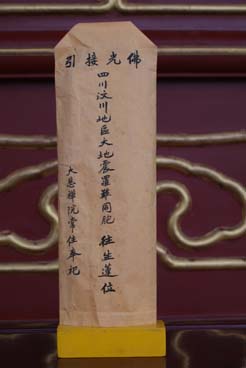 佛光接引
四川汶川地區大地震羅難同胞 往生蓮位
大慈禪院常住奉祀